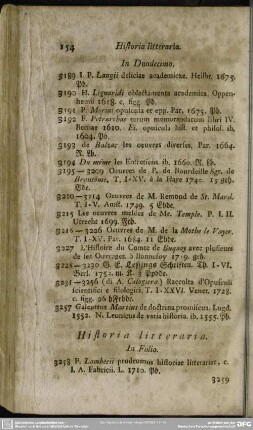 154 Historia litteraria.
In Duodecimo.
3189 I. P. Langii deliciae academicae. Heilbr. 1675.
Pb.
3190 H. Liguaridi oblectamenta academica. Oppen-
hemii 1618. c. figg. Pb.
3191 P. Morini opuscula et epp. Par. 1675. Pb.
3192 F. Petrarchae rerum memorandarum libri IV.
Bernae 1610. Ei. opuscula hist. et philos. ib.
1604. Pb.
3193 de Balzac les oeuvres diverses. Par. 1664.
R. Lb.
3194 Du même les Entretiens. ib. 1660. R. Lb.
3195 — 3209 Oeuvres de P. de Bourdeille Sgr. de
Branthome, T. I-XV. à la Haye 1740. 15
Ebde.
3210—3214 Oeuvres de M. Remond de St. Mard.
T. I-V. Amst. 1749. 5 Ebde.
3215 Les oeuvres melées de Mr. Temple. P. I. II.
Utrecht 1693.
3216 — 3226 Oeuvres de M. de la Mothe le Vayer.
T. I-XV. Par. 1684. 11 Ebde.
3227 L'Histoire du Comte de avec plusieurs
de ses Ouvrages. à 1719. geb.
3228—3230 G. E. Lessings Schriften. Th. I-VI.
Berl. 1753. m. K. 3 Ppbde.
3231—3256 (di A. Calogiera) Raccolta d'Opusculi
scientifici e filologici. T. I-XXVI. Venez. 1728.
c. figg. 26 hFrbde.
3257 Galeottus Martius de doctrina promiscua. Lugd.
1552. N. Leonicus de varia historia. ib. 1555. Pb.
Historia litteraria.
In Folio.
3258 P. Lambecii prodromus historiae litterariae, c.
I. A. Fabricii. L. 1710. Pb.
3259